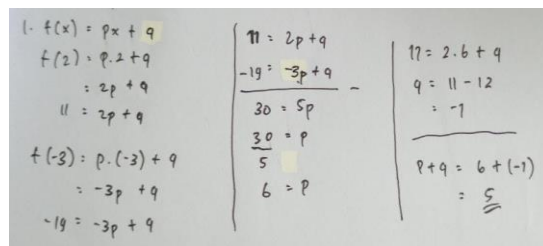 1. f(x) = px + q
f(2) = p.2 + q
= 2p + q
11 = 2p + q
f(-3) = p.(-3) + q
= -3p + q
-19 = -3p + q
11 = 2p + q
-19 = -3p + q
30 = 5p
30 = p
5
6 = p
11 = 2.6 + q
q = 11 - 12
= -1
p + q = 6 + (-1)
= 5